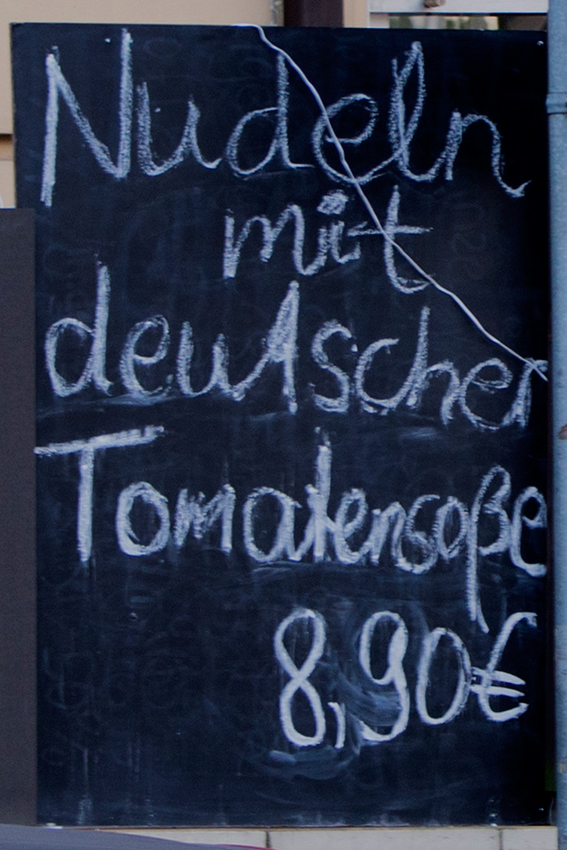 Nudeln
mit
deutscher
Tomatensoße
8,90€